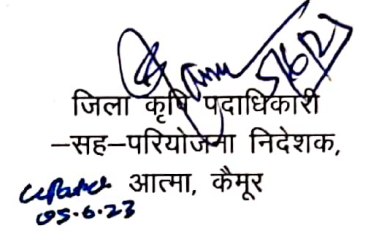 5/6/23
जिला कृषि पदाधिकारी
–सह–परियोजना निदेशक,
आत्मा, कैमूर
05.6.23